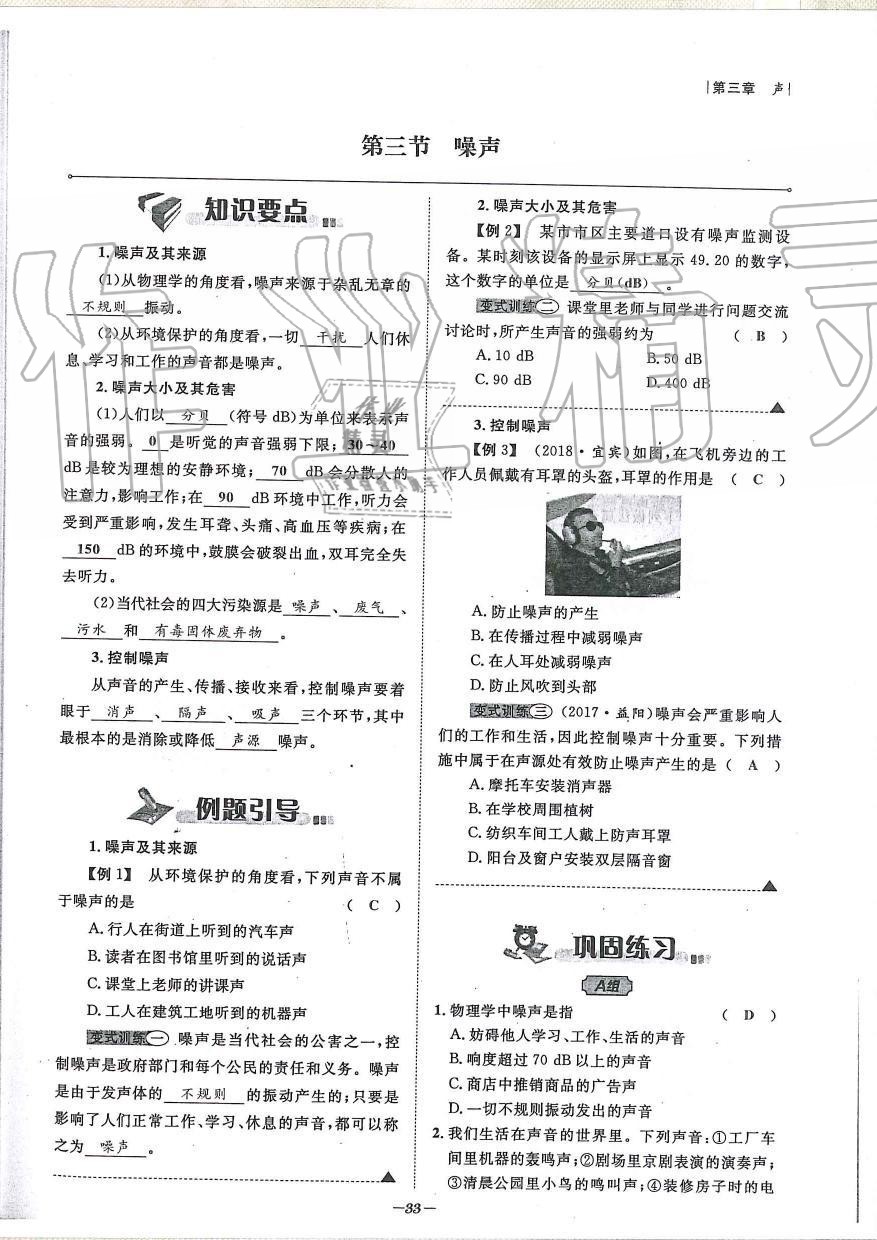 第三章 声
第三节 噪声
知识要点
1. 噪声及其来源
(1)从物理学的角度看,噪声来源于杂乱无章的
不规则 振动。
(2)从环境保护的角度看,一切 干扰 人们休
息、学习和工作的声音都是噪声。
2. 噪声大小及其危害
(1)人们以 分贝 (符号 dB)为单位来表示声
音的强弱。 0 是听觉的声音强弱下限; 30~40
dB是较为理想的安静环境; 70 dB会分散人的
注意力,影响工作;在 90 dB环境中工作,听力会
受到严重影响,发生耳聋、头痛、高血压等疾病;在
150 dB的环境中,鼓膜会破裂出血,双耳完全失
去听力。
(2)当代社会的四大污染源是 噪声 、 废气 、
污水 和 有毒固体废弃物 。
3. 控制噪声
从声音的产生、传播、接收来看,控制噪声要着
眼于 消声 、 隔声 、 吸声 三个环节,其中
最根本的是消除或降低 声源 噪声。
例题引导
1. 噪声及其来源
【例 1】 从环境保护的角度看,下列声音不属
于噪声的是 ( C )
A. 行人在街道上听到的汽车声
B. 读者在图书馆里听到的说话声
C. 课堂上老师的讲课声
D. 工人在建筑工地听到的机器声
变式训练一 噪声是当代社会的公害之一,控
制噪声是政府部门和每个公民的责任和义务。噪声
是由于发声体的 不规则 的振动产生的;只要是
影响了人们正常工作、学习、休息的声音,都可以称
之为 噪声 。
2. 噪声大小及其危害
【例 2】 某市市区主要道口设有噪声监测设
备。某时刻该设备的显示屏上显示 49.20 的数字,
这个数字的单位是 分贝(dB) 。
变式训练二 课堂里老师与同学进行问题交流
讨论时,所产生声音的强弱约为 ( B )
A. 10 dB B. 50 dB
C. 90 dB D. 400 dB
3. 控制噪声
【例 3】 (2018·宜宾)如图,在飞机旁边的工
作人员佩戴有耳罩的头盔,耳罩的作用是 ( C )
A. 防止噪声的产生
B. 在传播过程中减弱噪声
C. 在人耳处减弱噪声
D. 防止风吹到头部
变式训练三 (2017·益阳)噪声会严重影响人
们的工作和生活,因此控制噪声十分重要。下列措
施中属于在声源处有效防止噪声产生的是 ( A )
A. 摩托车安装消声器
B. 在学校周围植树
C. 纺织车间工人戴上防声耳罩
D. 阳台及窗户安装双层隔音窗
巩固练习
A组
1. 物理学中噪声是指 ( D )
A. 妨碍他人学习、工作、生活的声音
B. 响度超过 70 dB 以上的声音
C. 商店中推销商品的广告声
D. 一切不规则振动发出的声音
2. 我们生活在声音的世界里。下列声音:①工厂车
间里机器的轰鸣声;②剧场里京剧表演的演奏声;
③清晨公园里小鸟的鸣叫声;④装修房子时的电
—33—
作业精灵